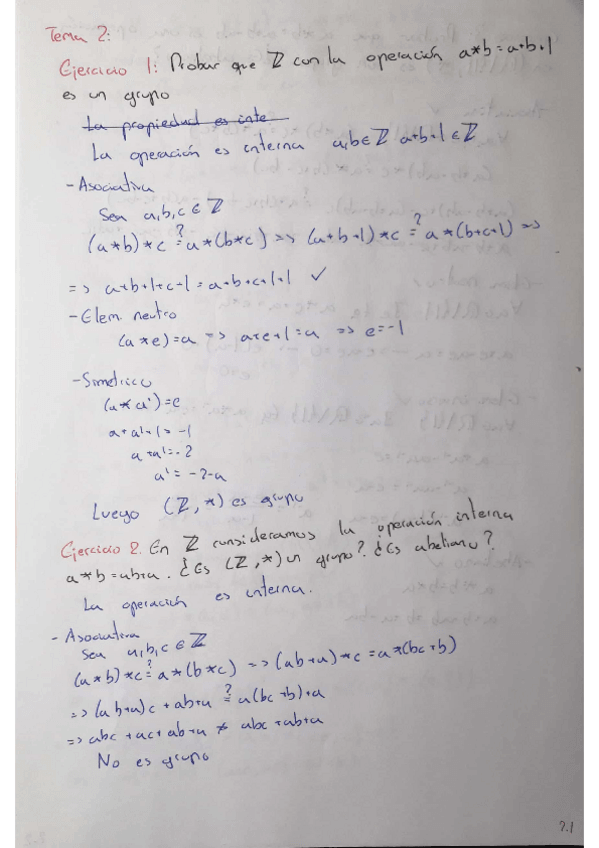 Tema 2:
Ejercicio 1: Probar que ℤ con la operación a*b=a+b+1
es un grupo
La propiedad es inte
La operación es interna a,b∈ℤ a+b+1∈ℤ
- Asociativa
Sea a,b,c∈ℤ
(a*b)*c ≟ a*(b*c) => (a+b+1)*c ≟ a*(b+c+1) =>
=> a+b+1+c+1=a+b+c+1+1 ✓
- Elem. neutro
(a*e)=a => a+e+1=a => e=-1
- Simétrico
(a*a')=e
a+a'+1=-1
a+a'=-2
a'=-2-a
Luego (ℤ,*) es grupo
Ejercicio 2. En ℤ consideramos la operación interna
a*b=ab+a. ¿Es (ℤ,*) un grupo? ¿Es abeliano?
La operación es interna.
- Asociativa
Sea a,b,c∈ℤ
(a*b)*c ≟ a*(b*c) => (ab+a)*c=a*(bc+b)
=> (ab+a)c+ab+a ≟ a(bc+b)+a
=> abc+ac+ab+a ≠ abc+ab+a
No es grupo
2.1